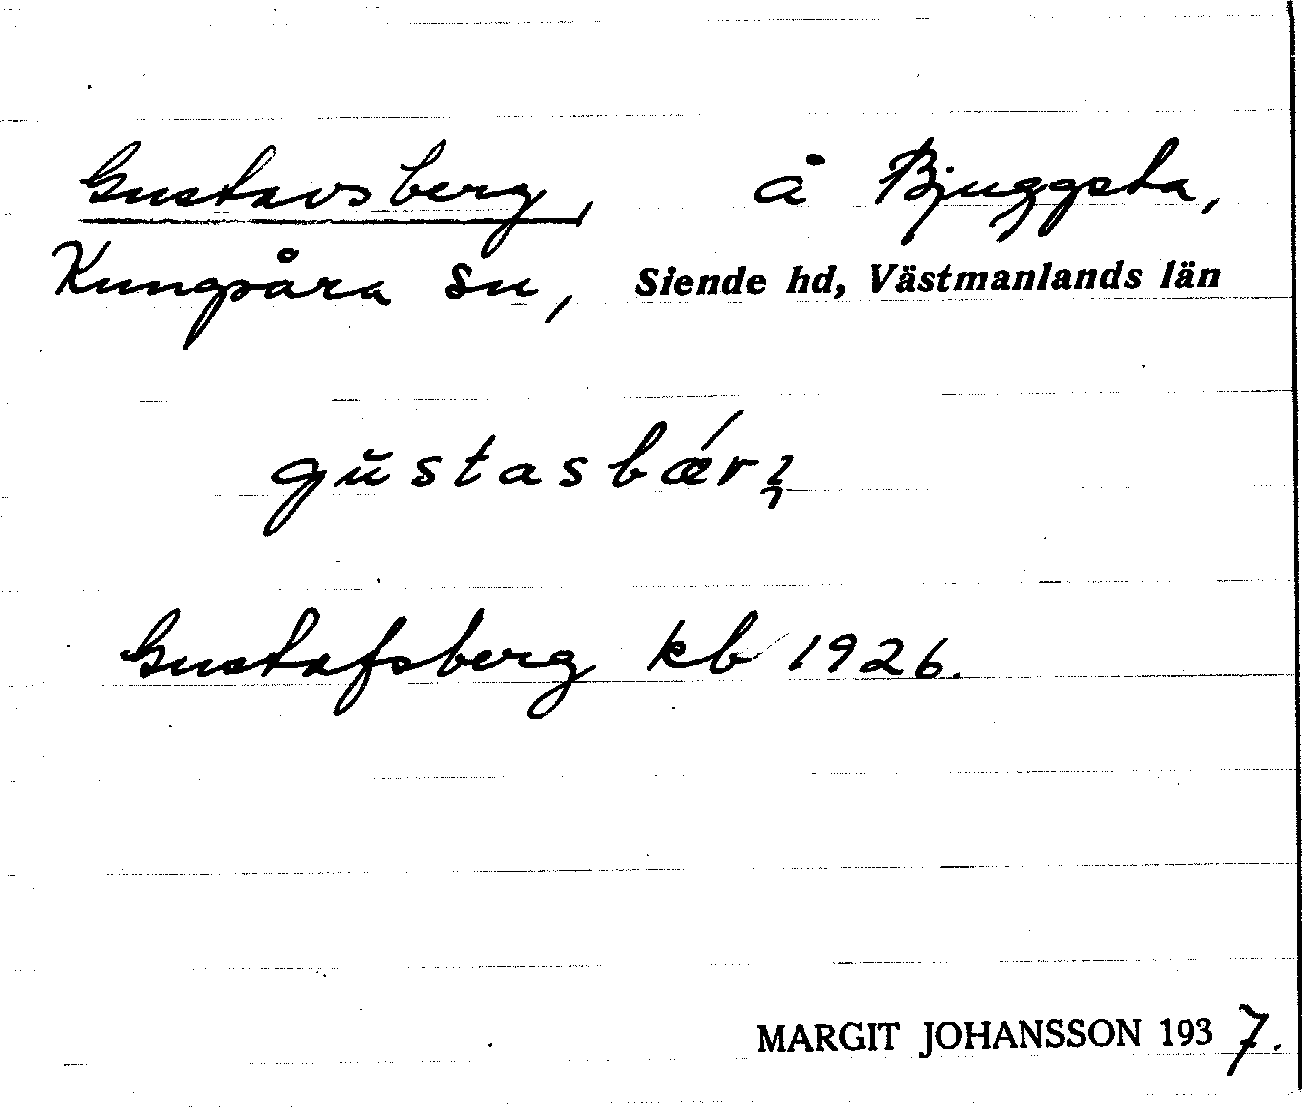 Gustavsberg, å Bjuggsta,
Kungsåra sn, Siende hd, Västmanlands län
gŭstasbǽrʒ
Gustafsberg kb 1926.
MARGIT JOHANSSON 1937.